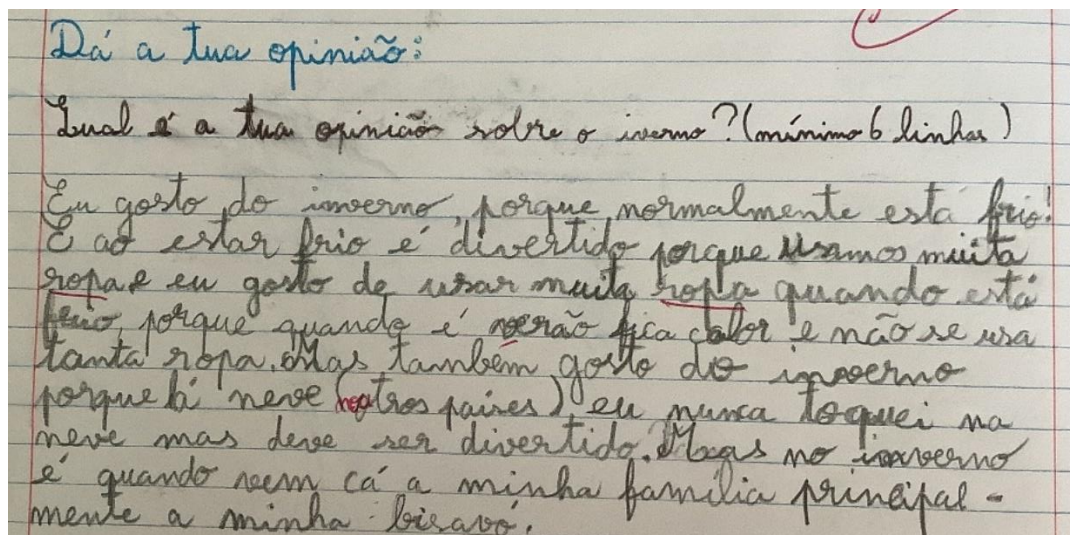 Dá a tua opinião:
Qual é a tua opinião sobre o iverno? (mínimo 6 linhas)
Eu gosto do inverno, porque normalmente está frio!
E ao estar frio é divertido porque usamos muita
ropa e eu gosto de usar muita ropa quando está
frio, porque quando é verão fica calor e não se usa
tanta ropa. Mas também gosto do inverno
porque lá neve (noutros países) eu nunca toquei na
neve mas deve ser divertido. Mas no inverno
é quando vem cá a minha família principal-
mente a minha bisavó.